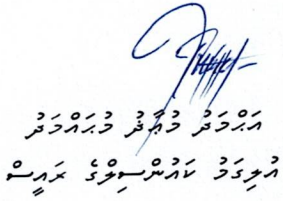 އަޙްމަދު މުޢާޛު މުޙައްމަދު
އުލިގަމު ކައުންސިލްގެ ރައީސް